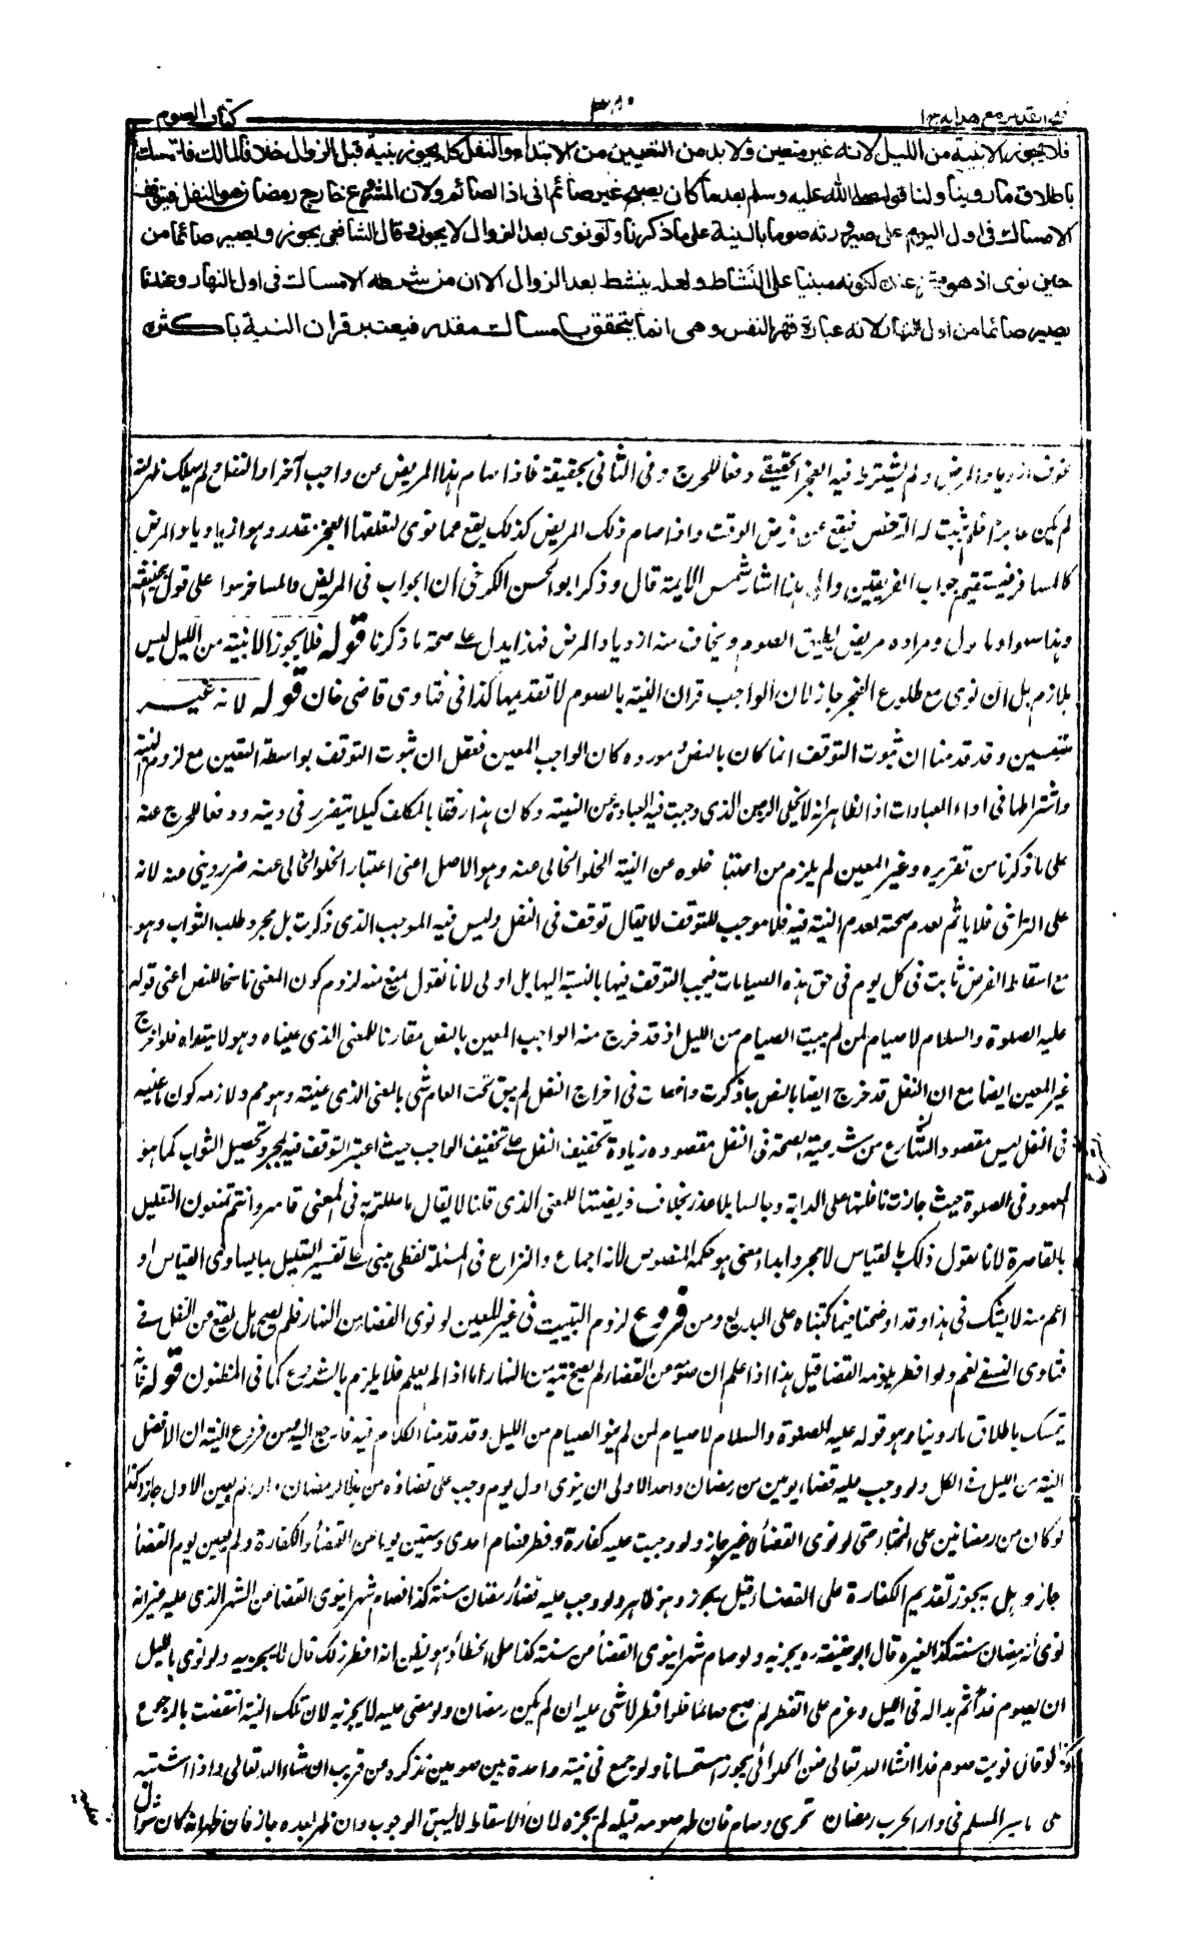 فتح القدير مع هدايه ج ١
٣٨٠
كتاب الصوم
فلا يجوز الا بنية من الليل لانه غير متعين ولابد من التعيين من الابتداء والنفل كله يجوز بنية قبل الزوال خلافا لمالك فانه تمسك
باطلاق ما روينا ولنا قوله صلى الله عليه وسلم بعد ما كان يصبح غير صائم انى اذا لصائم ولان المشروع خارج رمضان هو النفل فيتوقف
الامساك فى اول اليوم على صيرورته صوما بالنية على ما ذكرنا ولو نوى بعد الزوال لا يجوز وقال الشافعى يجوز ويصير صائما من
حين نوى اذ هو متجز عنده لكونه مبنيا على النشاط ولعله ينشط بعد الزوال الا ان من شرطه الامساك فى اول النهار وعندنا
يصير صائما من اول النهار لانه عبارة قهر النفس وهى انما يتحقق بامساك مقدر فيعتبر قران النية باكثره
خوف ازدياد المرض ولم يشترط فيه العجز الحقيقى دفعا للحرج وفى الثانى بحقيقته فاذا صام هذا المريض عن واجب آخر او النفل ولم يهلك ظهر انه
لم يكن عاجزا فلم يثبت له الترخص فيقع عن فرض الوقت واذا صام ذلك المريض كذلك يقع عما نوى لتعلقها بعجز مقدر وهو ازدياد المرض
كالمسافر فيستقيم جواب الفريقين والى هذا اشار شمس الايمة قال وذكر ابو الحسن الكرخى ان الجواب فى المريض والمسافر سواء على قول ابى حنيفة
وهذا سهو او ماول ومراده مريض يطيق الصوم ويخاف منه ازدياد المرض فهذا يدل على صحة ما ذكرنا قوله فلا يجوز الا بنية من الليل ليس
بلازم بل ان نوى مع طلوع الفجر جاز لان الواجب قران النية بالصوم لا تقديمها كذا فى فتاوى قاضى خان قوله لانه غير
متعين وقد قدمنا ان ثبوت التوقف انما كان بالنص ومورده كان الواجب المعين فعقل ان ثبوت التوقف بواسطة التعين مع لزوم النية
واشتراطها فى اداء العبادات اذ الظاهر انه لا يخلى الزمن الذى وجبت فيه العبادة عن النية وكان هذا رفقا بالمكلف كيلا يتضرر فى دينه ودفعا للحرج عنه
على ما ذكرنا من تقريره وغير المعين لم يلزم من اعتبار خلوه عن النية الخلو الخالى عنه وهو الاصل اعنى اعتبار الخلو الخالى عنه ضرر دينى عنه لانه
على التراخى فلا ياثم لعدم صحته لعدم النية فيه فلا موجب للتوقف لا يقال توقف فى النفل وليس فيه الموجب الذى ذكرت بل مجرد طلب الثواب وهو
مع اسقاط الفرض ثابت فى كل يوم فى حق هذه الصيامات فيجب التوقف فيها بالنسبة اليها بل اولى لانا نقول يمنع منه لزوم كون المعنى ناسخا للنص اعنى قوله
عليه الصلوة والسلام لا صيام لمن لم يبيت الصيام من الليل اذ قد خرج منه الواجب المعين بالنص مقارنا للمعنى الذى عيناه وهو لا يتعداه فلو اخرج
غير المعين ايضا مع ان النفل قد خرج ايضا بالنص بما ذكرت واضعاف فى اخراج النفل لم يبق تحت العام شى بالمعنى الذى عينته وهو مم ولازمه كون ما عينه
فى النفل ليس مقصود الشارع من شرعية الصحة فى النفل مقصوده زيادة تخفيف النفل على تخفيف الواجب حيث اعتبر التوقف فيه لمجرد تحصيل الثواب كما هو
المعهود فى الصلوة حيث جازت نافلتها على الدابة وجالسا بلا عذر بخلاف فريضتها للمعنى الذى قلنا لا يقال ما عللتم به فى المعين قاصر وانتم تمنعون التعليل
بالقاصرة لانا نقول ذلك بالقياس لا مجرد ابداء معنى هو حكمة المنصوص لانه اجماع والنزاع فى المسئلة لفظى مبنى على تفسير التعليل بما يساوى القياس او
اعم منه لا يشك فى هذا وقد اوضحنا فيما كتبناه على البديع ومن فروع لزوم التبييت فى غير المعين لو نوى القضاء من النهار فلم يصح هل يقع عن النفل فى
فتاوى النسفى نعم ولو افطر يلزمه القضا قيل هذا اذا علم ان صومه عن القضاء لم يصح نيته من النهار اما اذا لم يعلم فلا يلزم بالشروع كما فى المظنون قوله فانه
يتمسك باطلاق ما روينا وهو قوله عليه الصلوة والسلام لا صيام لمن لم ينو الصيام من الليل وقد قدمنا الكلام فيه فارجع اليه ومن فروع النية ان الافضل
النية من الليل فى الكل ولو وجب عليه قضاء يومين من رمضان واحد الاولى ان ينوى اول يوم وجب على قضاؤه من هذا الرمضان وان لم يعين الاول جاز وكذا
لو كان من رمضانين على المختار حتى لو نوى القضاء لا غير جاز ولو وجبت عليه كفارة وفطر فصام احدى وستين يوما عن القضاء والكفارة ولم يعين يوم القضاء
جاز وهل يجوز تقديم الكفارة على القضاء قيل يجوز وهو ظاهر ولو وجب عليه قضاء رمضان سنة كذا فصام شهرا ينوى القضاء عن الشهر الذى عليه غير انه
نوى انه رمضان سنة كذا لغيره قال ابو حنيفة ره يجزيه ولو صام شهرا ينوى القضاء من سنة كذا على الخطأ وهو يظن انه افطر ذلك قال لا يجزيه ولو نوى بالليل
ان يصوم غدا ثم بدا له فى الليل وعزم على الفطر ثم اصبح صائما فلو افطر لا شى عليه ان لم يكن رمضان ولو مضى عليه لا يجزيه لان تلك النية انتقضت بالرجوع
ولو قال نويت صوم غدا انشاء الله تعالى فعن الحلوائى يجوز استحسانا ولو جمع فى نية واحدة بين صومين نذكره من قريب ان شاء الله تعالى واذا اشتبه
على اسير المسلم فى دار الحرب رمضان تحرى وصام فان ظهر صومه قبله لم يجزه لان الاسقاط لا يسبق الوجوب وان ظهر بعده جاز فان ظهر انه كان شوال